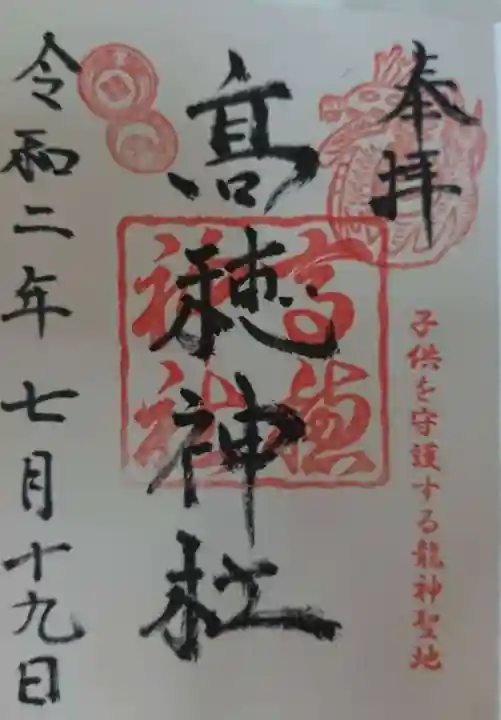 奉拝
子供を守護する龍神聖地
髙穂神社
高穂神社
令和二年七月十九日